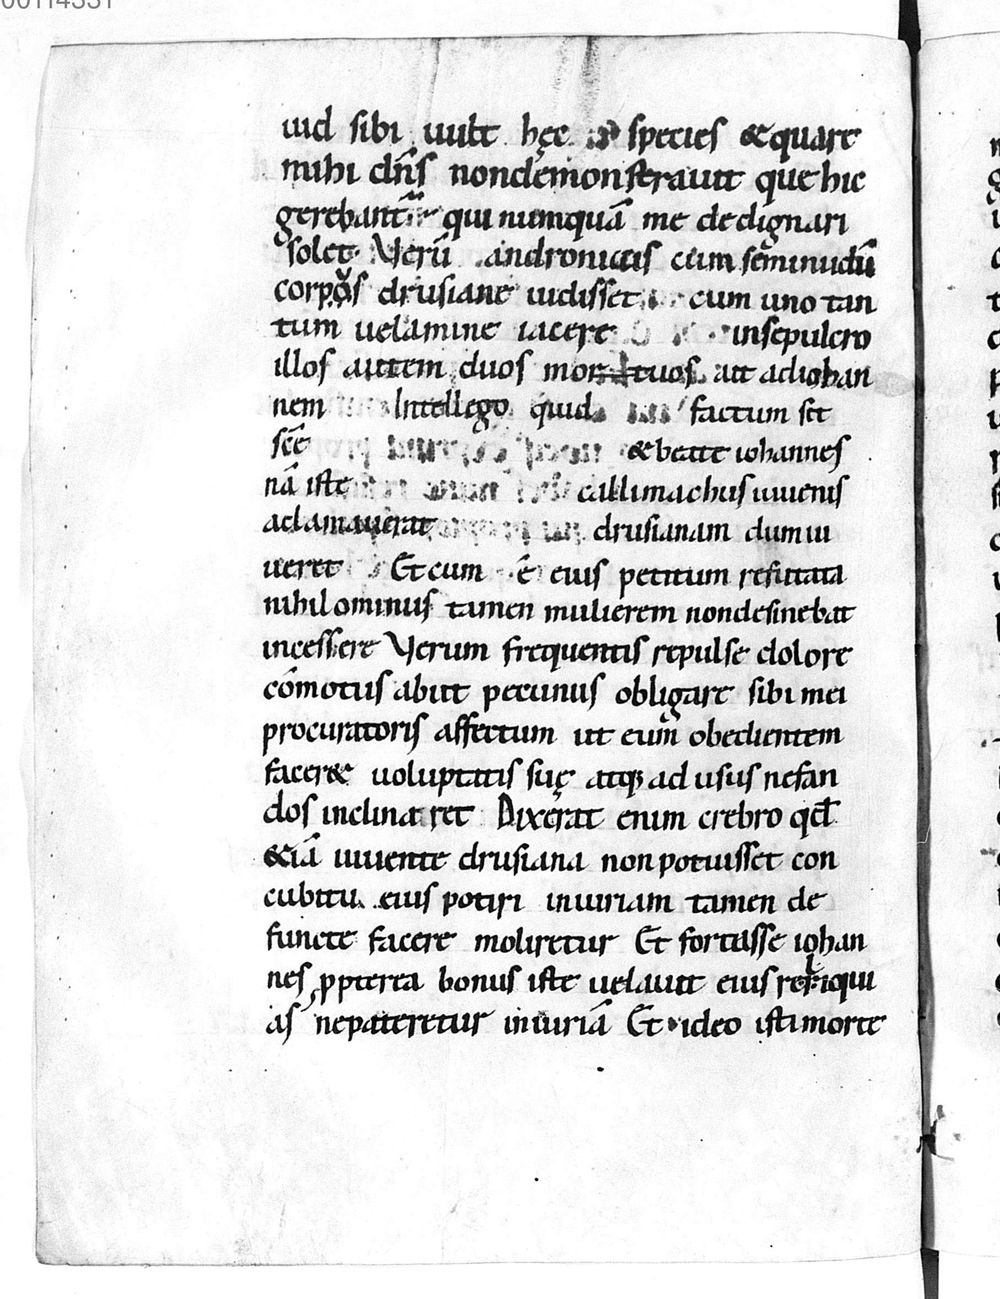 00114331
uid sibi uult hęc species & quare
mihi dn̄s nondemonstrauit que hic
gerebant qui numquā me dedignari
solet. Verū andronicus cum seminudū
corpus drusiane uidisset cum uno tan
tum uelamine iacere insepulcro
illos autem duos mortuos. ait adiohan
nem Intellego quid factum sit
scē & beate iohannes
nā iste callimachus iuuenis
adamauerat drusianam dum ui
ueret Et cum ē eius petitum refutata
nihilominus tamen mulierem nondesinebat
incessere Verum frequentis repulse dolore
cōmotus abiit pecunus obligare sibi mei
procuratoris affectum ut eum obedientem
facer& uoluptatis suę atq; ad usus nefan
dos inclinaret Dixerat enim crebro qd̄
&iā uiuente drusiana non potuisset con
cubitu eius potiri iniuriam tamen de
functe facere moliretur Et fortasse iohan
nes ppterea bonus iste uelauit eius reliqui
as nepateretur iniuriā Et ideo isti morte